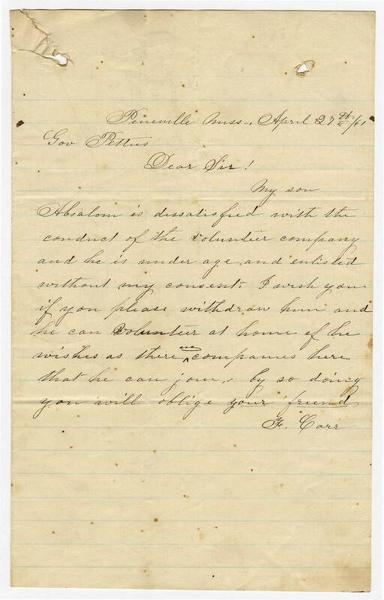 Pineville Miss., April 27th/61
Gov Pettus
Dear Sir!
My son
Absalom is dissatisfied with the
conduct of the volunteer company
and he is under age, and enlisted
without my consent. I wish you
if you please withdraw him and
he can volunteer at home if he
wishes as there are companies here
that he can join, by so doing
you will oblige your friend
F. Carr